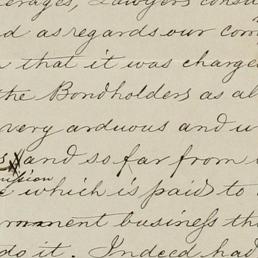 erages, Lawyers consu
d as regards our com
n that it was charge
the Bondholders as al
very arduous and u
and so far from
mission
e which is paid to
rmanent business th
do it. Indeed had